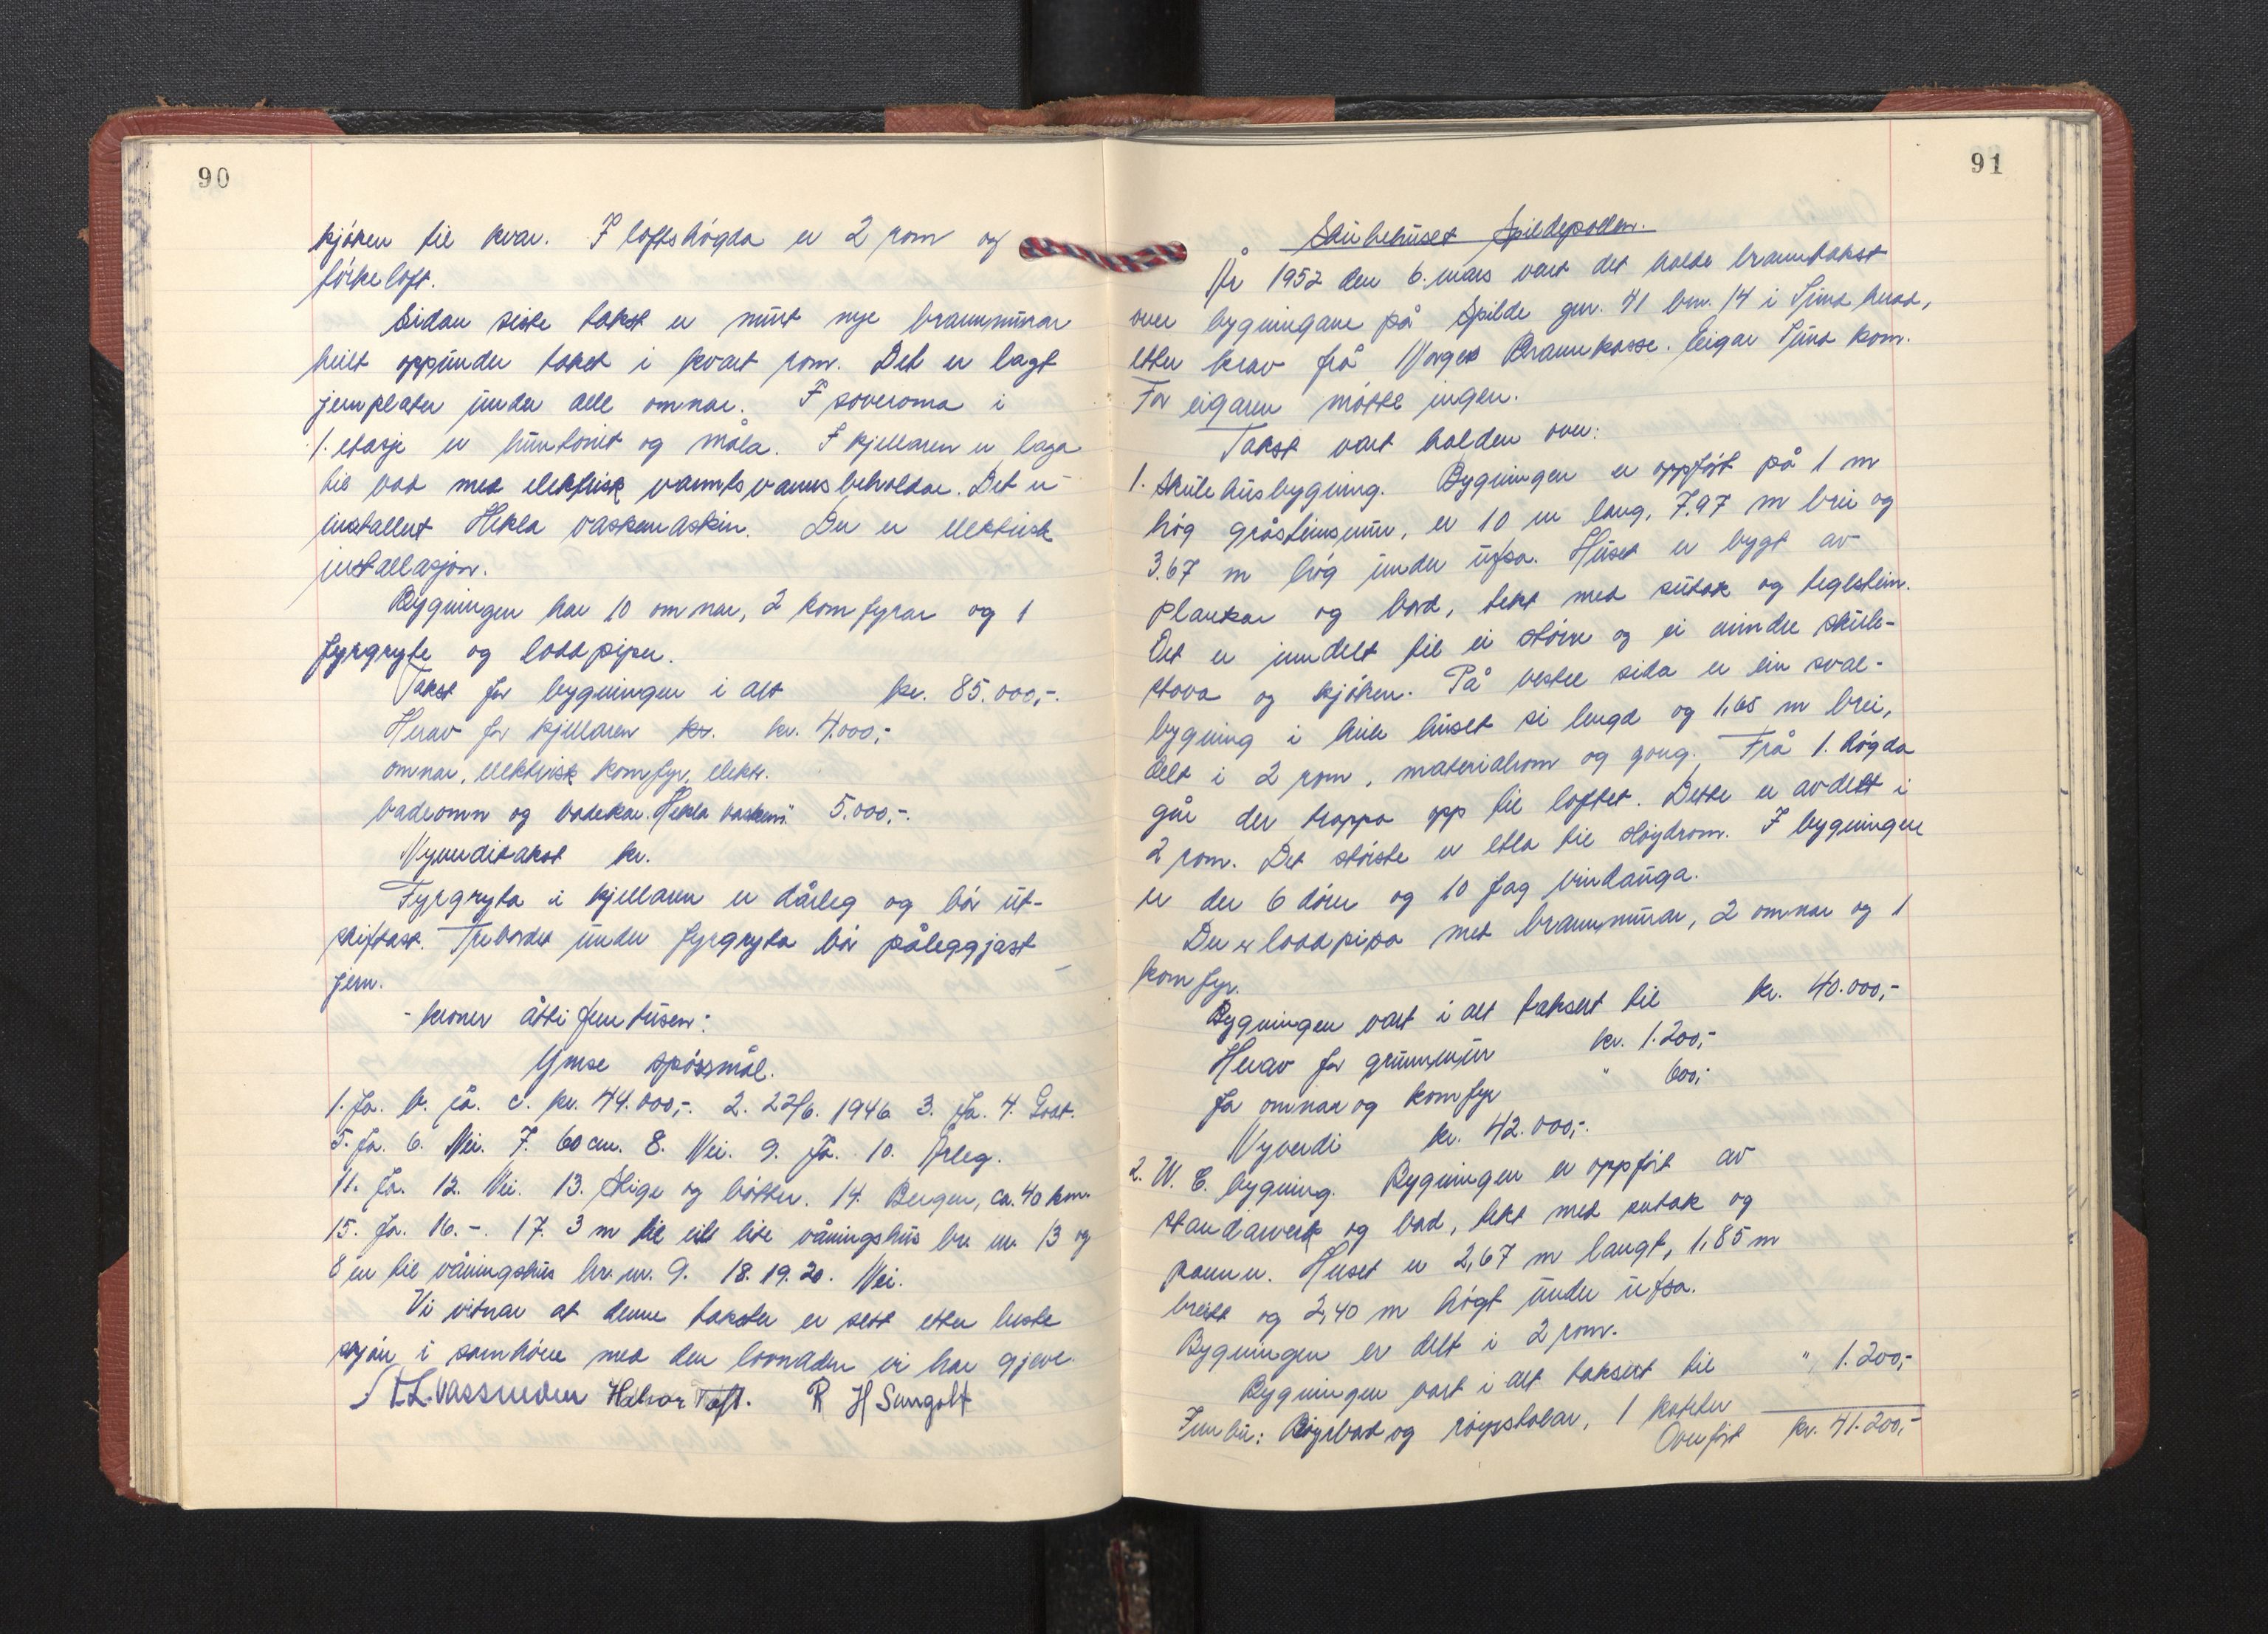 90
kjøken til kvar. I loftshøgda er 2 rom og
tørkeloft.
Sidan siste takst er murt nye brannmurar
heilt oppunder taket i kvart rom. Det er lagt
jernplater under alle omnar. I soveroma i
1. etasje er huntonit og måla. I kjellaren er laga
til bad med elektrisk varmtvannsbeholdar. Det er
installert Hekla vaskemaskin. Der er elektrisk
installasjon.
Bygningen har 10 omnar, 2 komfyrar og 1
fyrgryte og loddpiper.
Takst for bygningen i alt kr. 85.000,-.
Herav for kjellaren kr. kr. 4.000,-
omnar, elektrisk komfyr, elektr.
badeomn og badekar. Hekla vaskem. " 5.000,-.
Nyverditakst kr.
Fyrgryta i kjellaren er dårleg og bør ut-
skiftast. Trebordet under fyrgryta bør påleggjast
jern.
- kroner åtti fem tusen -
Ymse spørsmål.
1. Ja. b. ja. c. kr. 44.000,-. 2. 22/6. 1946 3. Ja. 4. Godt.
5. Ja. 6. Nei. 7. 60 cm. 8. Nei. 9. Ja. 10. Årleg.
11. Ja. 12. Nei. 13. Stige og bøtter. 14. Bergen, ca. 40 km.
15. Ja. 16. -. 17. 3 m til eit lite våningshus br. nr. 13 og
8 m til våningshus br. nr. 9. 18. 19. 20. Nei.
Vi vitnar at denne taksten er sett etter beste
skjøn i samhøve med den lovnaden vi har gjeve.
Halvor Toft. R H Sungolt
91
Skulehuset Spildepollen.
År 1952 den 6. mars vart det halde branntakst
over bygningane på Spilde gnr. 41 bnr. 14 i Sund herad,
etter krav frå Norges Brannkasse. Eigar Sund kom.
For eigaren møtte ingen.
Takst vart halden over:
1. Skulehusbygning. Bygningen er oppført på 1 m
høg gråsteinsmur, er 10 m lang, 7.97 m brei og
3.67 m høg under ufsa. Huset er bygt av
plankar og bord, tekt med sutak og teglstein.
Det er inndelt til ei større og ei mindre skule-
stova og kjøken. På vestre sida er ein sval-
bygning i heile huset si lengd og 1,65 m brei,
delt i 2 rom, materialrom og gong. Frå 1. høgda
går der trappa opp til loftet. Dette er avdelt i
2 rom. Det største er etla til sløydrom. I bygningen
er der 6 dører og 10 fag vindauga.
Der er loddpipa med brannmurar, 2 omnar og 1
komfyr.
Bygningen vart i alt taksert til kr. 40.000,-
Herav for grunnmur kr. 1.200,-
for omnar og komfyr " 600,-
Nyverdi kr. 42.000,-.
2. W. C. bygning. Bygningen er oppført av
standarverk og bord, tekt med sutak og
panner. Huset er 2,67 m langt, 1,85 m
breitt og 2,40 m høgt under ufsa.
Bygningen er delt i 2 rom.
Bygningen vart i alt taksert til " 1.200,-
Innbu: og 1 kateter
Overført kr. 41.200,-